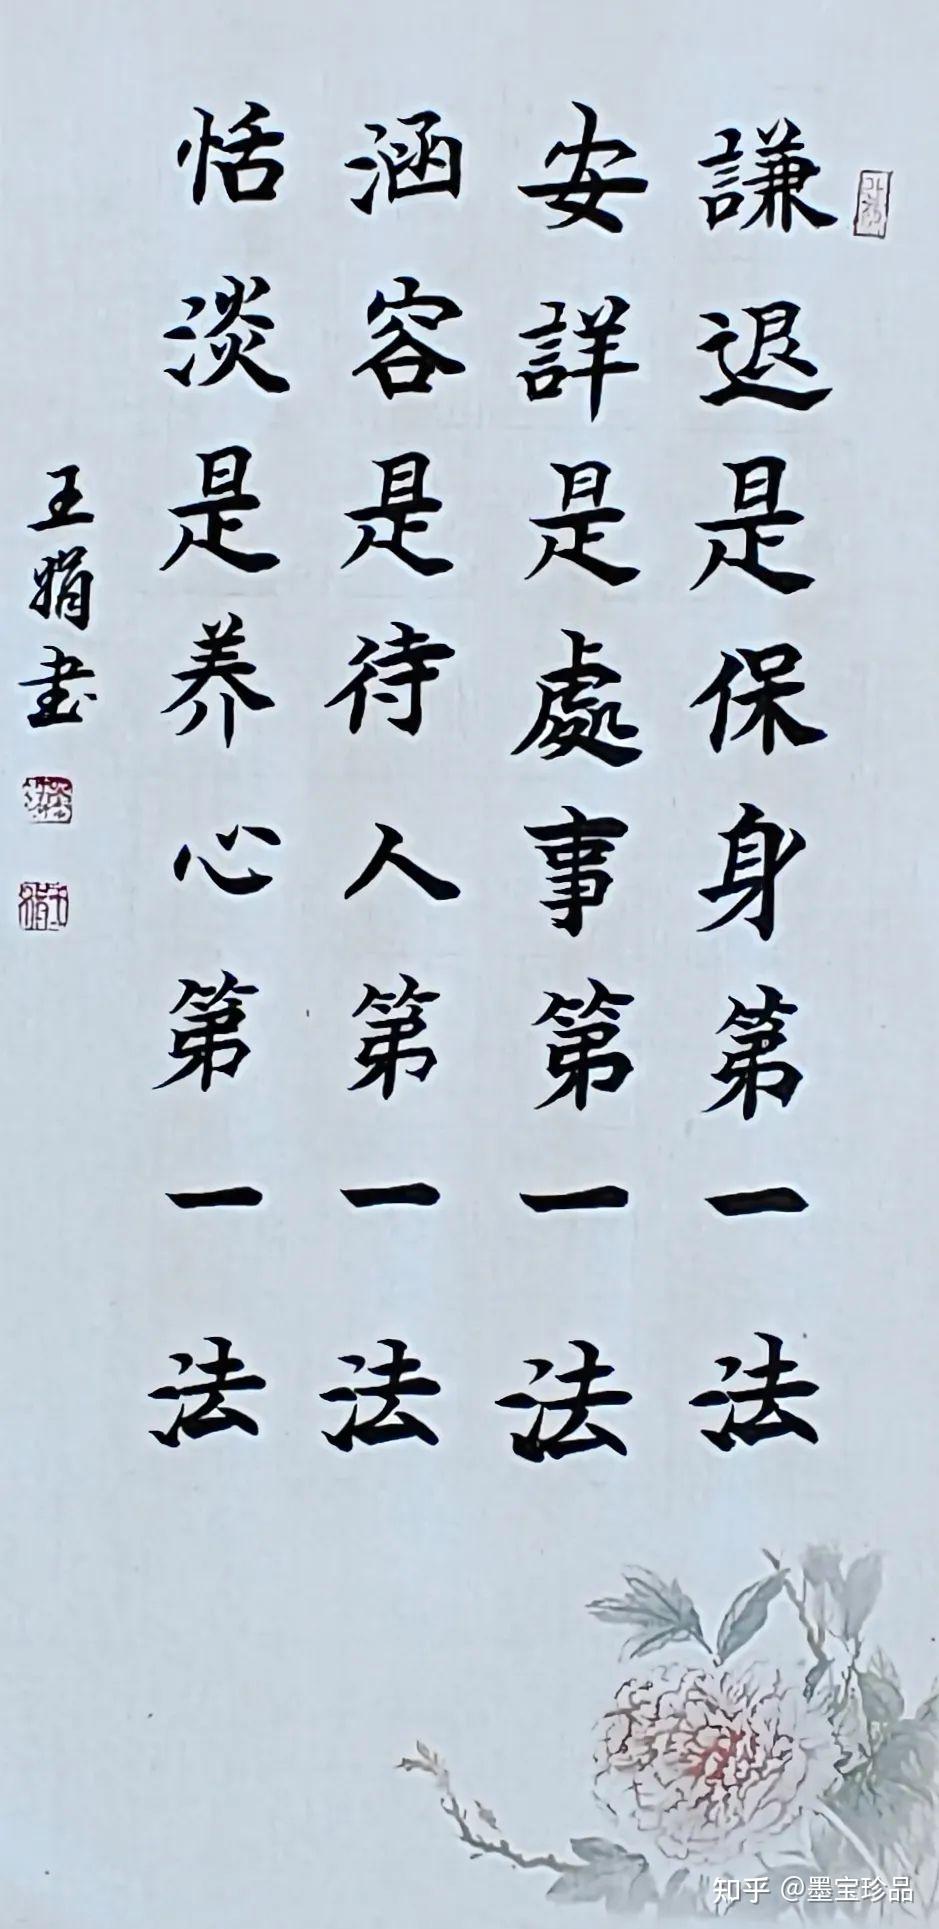 謙退是保身第一法
安詳是處事第一法
涵容是待人第一法
恬淡是养心第一法
王娟書
知乎 @墨宝珍品